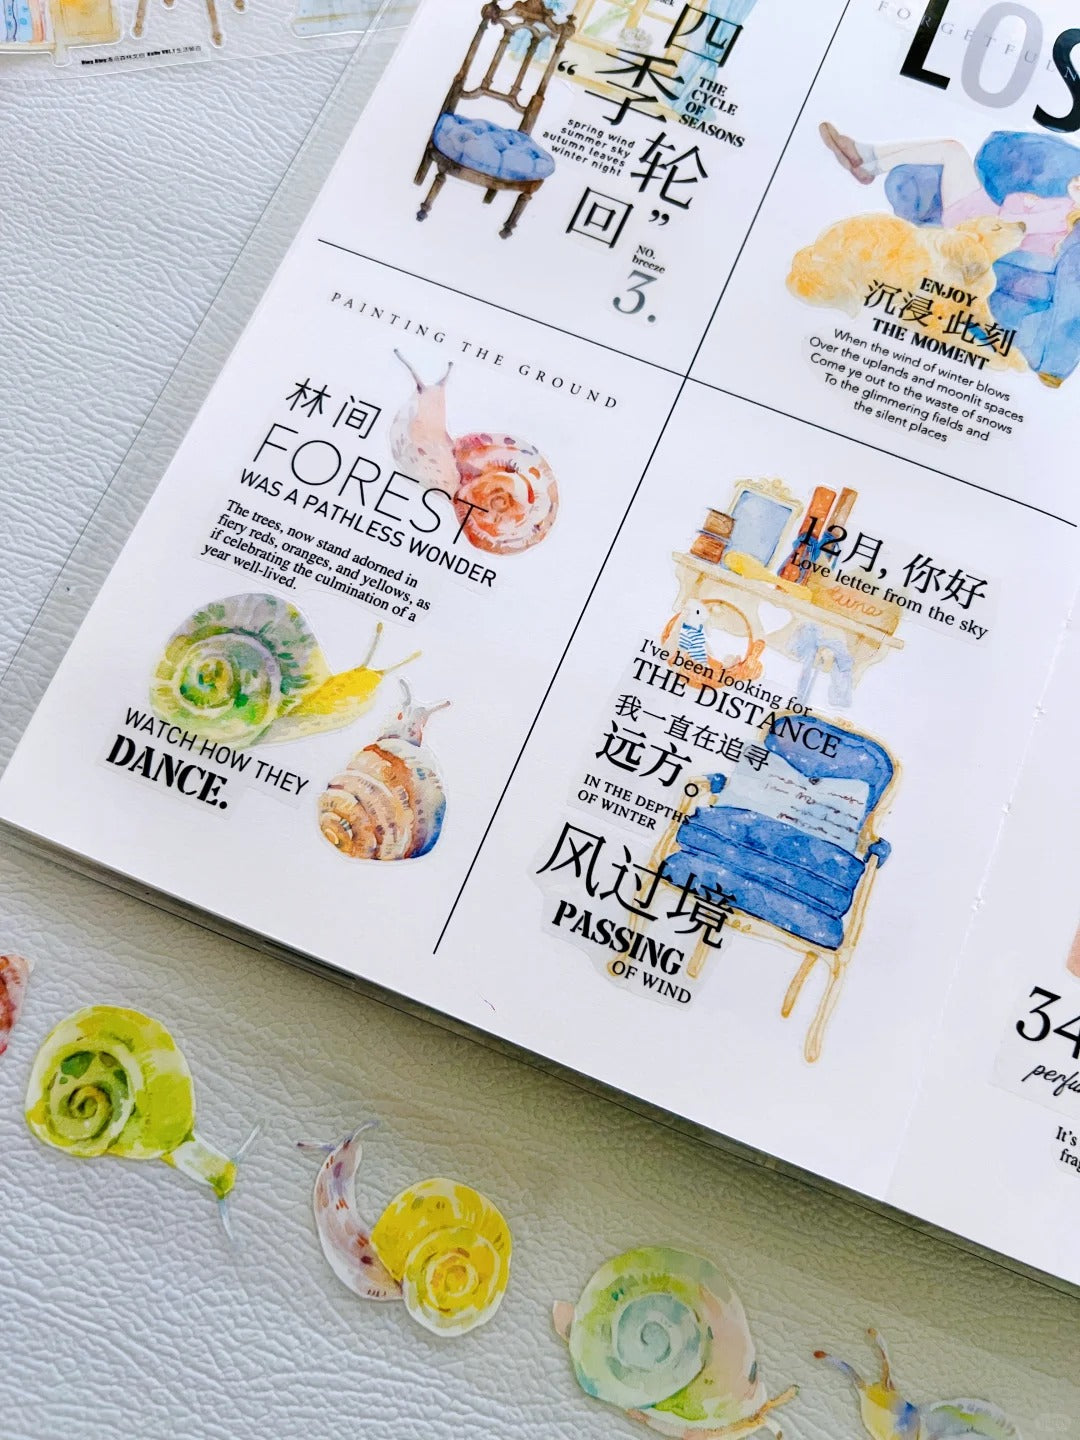 四
季
轮
回
“
”
THE
CYCLE
OF
SEASONS
spring wind
summer sky
autumn leaves
winter night
NO.
breeze
3.
LOS
ENJOY
沉浸·此刻
THE MOMENT
When the wind of winter blows
Over the uplands and moonlit spaces
Come ye out to the waste of snows
To the glimmering fields and
the silent places
PAINTING THE GROUND
林间
FOREST
WAS A PATHLESS WONDER
The trees, now stand adorned in
fiery reds, oranges, and yellows, as
if celebrating the culmination of a
year well-lived.
WATCH HOW THEY
DANCE.
12月, 你好
Love letter from the sky
I've been looking for
THE DISTANCE
我一直在追寻
远方。
IN THE DEPTHS
OF WINTER
风过境
PASSING
OF WIND
34
It's